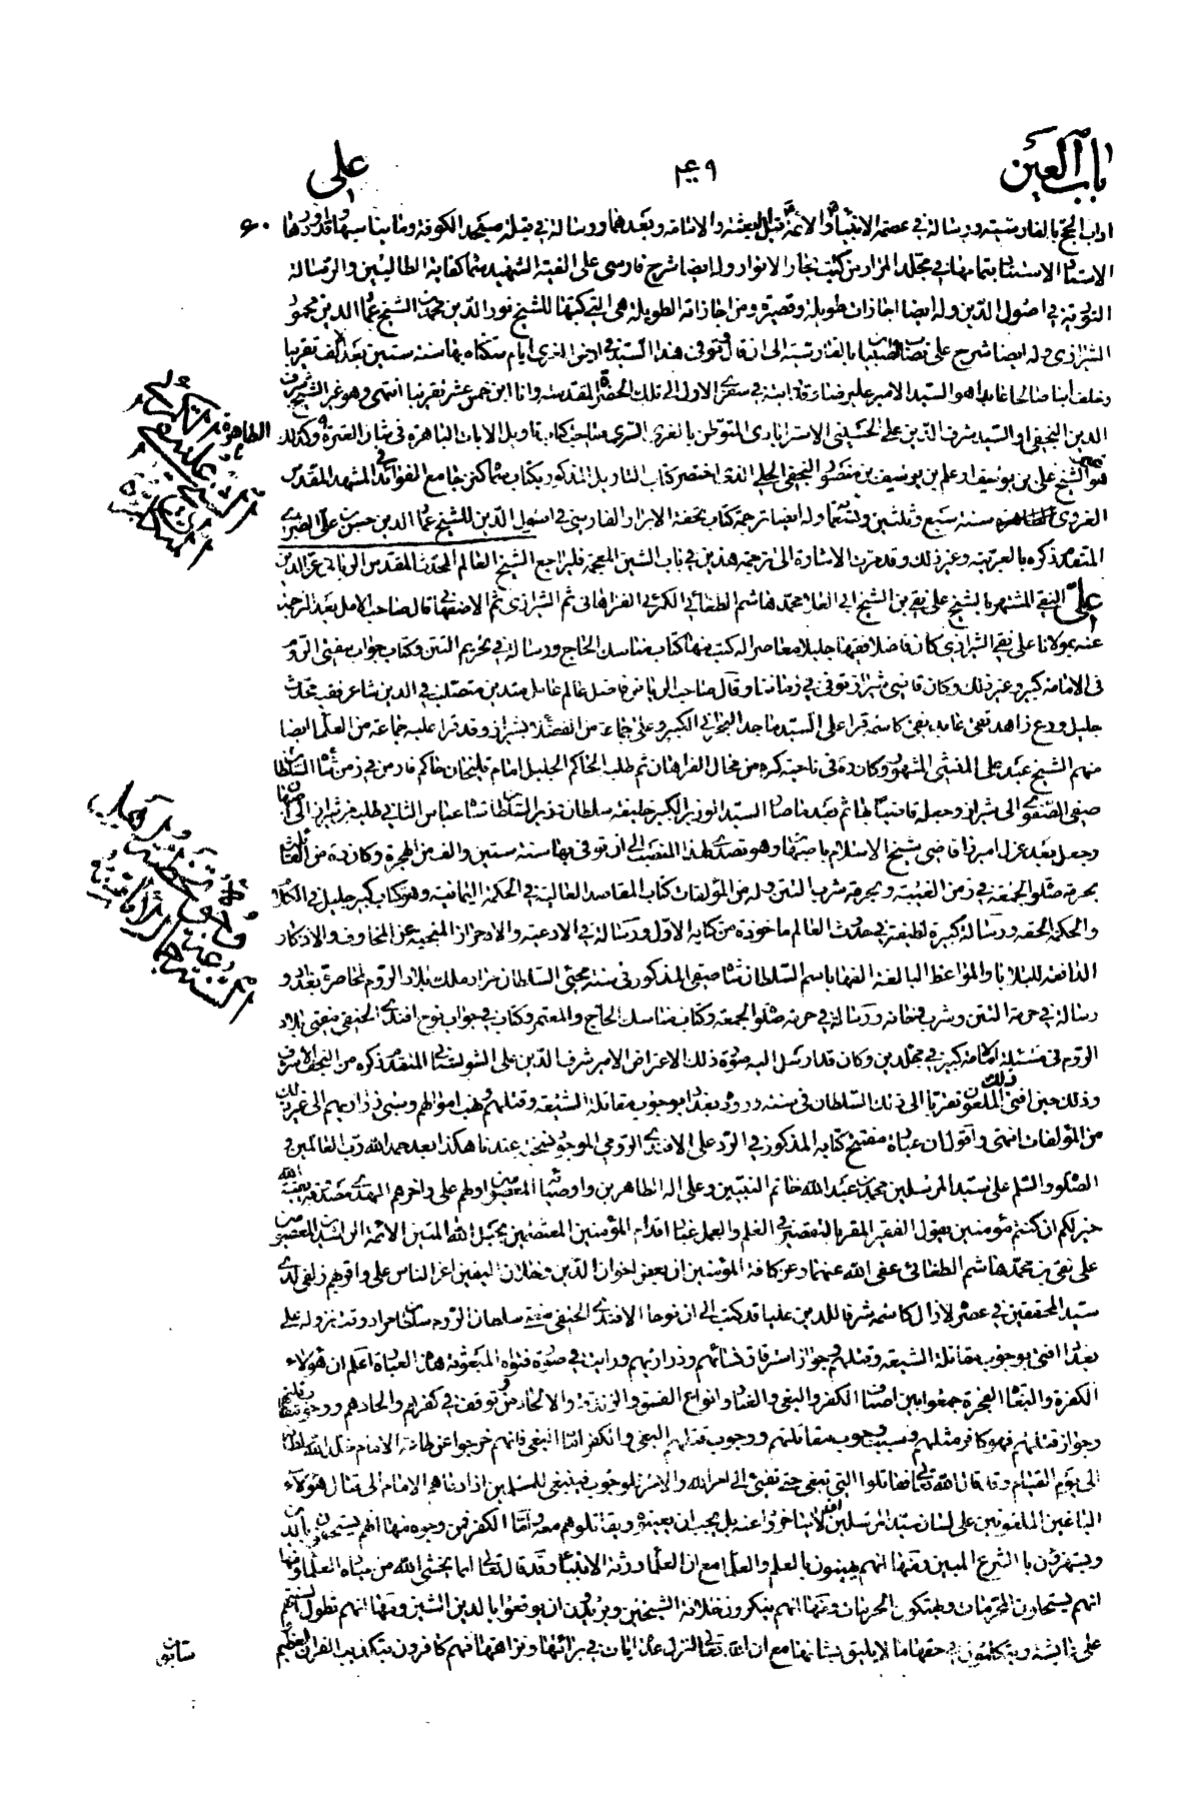 باب العين
۴۰۹
على
۶۰
اداب الحج بالفارسية ورسالة في عصمة الانبياء والائمة قبل البعثة والامامة وبعدهما ورسالة في قبلة مسجد الكوفة وما يناسبها وقد اوردها
الاستاد الاستناد بتمامها في مجلد المزار من كتب بحار الانوار وله ايضا شرح فارسى على الفية الشهيد سماه كفاية الطالبين والرسالة
في اصول الدين وله ايضا اجازات طويلة وقصيرة ومن اجازاته الطويلة هى التي كتبها للشيخ نور الدين محمد بن الشيخ عماد الدين محمود
الشيرازى وله ايضا شرح على نصاب الصبيان بالفارسية الى ان قال وتوفى هذا السيد في ارض الغرى ايام سكناه بها سنة ستين بعد الف تقريبا
وخلف ابنا صالحا عابدا هو السيد الامير عليرضا وقد رايته في سفرى الاول الى تلك الحضرة المقدسة وانا ابن خمس عشر تقريبا انتهى وهو غير الشيخ شرف
الدين النجفى او السيد شرف الدين على الحسينى الاسترابادى المتوطن بالغرى السرى صاحب كتاب تاويل الايات الباهرة في شان العترة الطاهرة وكذلك
هو غير الشيخ على بن يوسف او علم بن يوسف بن منصور النجفى الحلى الذى اختصر كتاب التاويل المذكور بكتاب سماه كنز جامع الفوائد في المشهد المقدس
الغروى سنة سبع وثلثين وتسعمائة وله ايضا ترجمة كتاب تحفة الابرار الفارسى في اصول الدين للشيخ عماد الدين حسن بن على الطبرسى
المتقدم ذكره بالعربية وغير ذلك وقد مرت الاشارة الى ترجمة هذين في باب الشين المعجمة فليراجع الشيخ العالم المحدث المقدس الربانى عز الدين
على النقى المشهور بالشيخ على نقى بن الشيخ ابى العلاء محمد هاشم الطغائى الكمرئى الفراهانى ثم الشيرازى ثم الاصفهانى قال صاحب الامل بعد الترجمة
عنه بمولانا على نقى الشيرازى كان فاضلا فقيها جليلا معاصرا له كتب منها كتاب مناسك الحاج ورسالة في تحريم التتن وكتاب جواب مفتى الروم
في الامامة كبير وغير ذلك وكان قاضى شيراز توفى في زماننا وقال صاحب الرياض فاضل عالم عامل متدين متصلب في الدين شاعر فقيه محدث
جليل ورع زاهد تقى عابد نقى كاسمه قرا على السيد ماجد البحرانى الكبير وعلى جماعة من الفضلاء بشيراز وقد قرا عليه جماعة من العلماء ايضا
منهم الشيخ عبد على المشهور وكان ره في ناحية كمره من محال الفراهان ثم طلبه الحاكم الجليل امام قليخان حاكم فارس في زمن شاه السلطان
صفى الصفوى الى شيراز وجعله قاضيا بها ثم بعد ما صار السيد الوزير الكبير خليفة سلطان وزير السلطان شاه عباس الثانى طلبه من شيراز الى اصفهان
وجعله بعد عزل اميرزا قاضى شيخ الاسلام باصبهان وهو تصدى لهذا المنصب الى ان توفى بها سنة ستين والف من الهجرة وكان ره من القائلين
بحرمة صلوة الجمعة في زمن الغيبة وبحرمة شرب التتن وله من المؤلفات كتاب المقاصد العالية في الحكمة اليمانية وهو كتاب كبير جليل في الكلام
والحكمة الحقة ورسالة كبيرة لطيفة في حدوث العالم ماخوذة من كتابه الاول ورسالة في الادعية والاحراز المنجية عن المخاوف والاذكار
الدافعة للبلايا والمواعظ البالغة الفها باسم السلطان شاه صفى المذكور في سنة مجئ السلطان مراد ملك بلاد الروم لمحاصرة بغداد و
رسالة في حرمة التتن وشرب دخانه ورسالة في حرمة صلوة الجمعة وكتاب مناسك الحاج والمعتمر وكتاب في جواب نوح افندى الحنفى مفتى بلاد
الروم في مسئلة الامامة كبير في مجلدين وكان قد ارسل اليه صورة ذلك الاعتراض الامير شرف الدين على الشولستانى المتقدم ذكره من النجف الاشرف
وذلك حين افتى ذلك الملعون تقربا الى ذلك السلطان في سنة وروده بغداد بوجوب مقاتلة الشيعة وقتلهم ونهب اموالهم وسبى ذراريهم الى غير ذلك
من المؤلفات انتهى واقول ان عبارة مفتتح كتابه المذكور في الرد على الافندى الرومى الموجود نسخته عندنا هكذا بعد حمد الله رب العالمين و
الصلوة والسلم على سيد المرسلين محمد بن عبد الله خاتم النبيين وعلى اله الطاهرين واوصيائه المعصومين اولهم على واخرهم المهدى بقية الله
خير لكم ان كنتم مؤمنين يقول الفقير المقر بالتقصير في العلم والعمل غبار اقدام المؤمنين المعتصمين بحبل الله المتين الائمة الراشدين المعصومين
على نقى بن محمد هاشم الطغائى عفى الله عنهما وعن كافة المؤمنين ان بعض اخوان الدين وخلان اليقين اعز الناس على واقربهم زلفى لدى
سيد المحققين في عصره لازال كاسمه شرفا للدين عليا قد كتب الى ان نوحا الافندى الحنفى سلطان الروم سلطان مراد وقت نزوله على
بغداد افتى بوجوب مقاتلة الشيعة وقتلهم وجواز استرقاق نسائهم وذراريهم ورايت في صورة فتواه المبعوثة هذه العبارة اعلم ان هؤلاء
الكفرة والبغاة الفجرة جمعوا بين اصناف الكفر والبغى والعناد وانواع الفسق والزندقة والالحاد ومن توقف في كفرهم والحادهم ووجوب قتالهم
وجواز قتلهم فهو كافر مثلهم وسبب وجوب مقاتلتهم ووجوب قتلهم البغى والكفر اما البغى فانهم خرجوا عن طاعة الامام خلد الله ملكه
الى يوم القيام وقد قال الله تعالى فقاتلوا التي تبغى حتى تفئ الى امر الله والامر للوجوب فينبغى للمسلمين اذا دعاهم الامام الى قتال هؤلاء
الباغين الملعونين على لسان سيد المرسلين ان لا يتاخروا عنه بل يجب ان يعينوه ويقاتلوهم معه واما الكفر فمن وجوه منها انهم يستخفون بالدين
ويستهزؤن بالشرع المبين ومنها انهم يهينون بالعلم والعلماء مع ان العلماء ورثة الانبياء وقد قال تعالى انما يخشى الله من عباده العلماء ومنها
انهم يستحلون المحرمات ويهتكون الحرمات ومنها انهم ينكرون خلافة الشيخين ويريدون ان يوقعوا بالدين الشين ومنها انهم يطول السنتهم
على عايشة ويتكلمون في حقها ما لا يليق بشانها مع ان الله تعالى انزل عدة ايات في برائتها ونزاهتها فهم كافرون بتكذيب القران العظيم